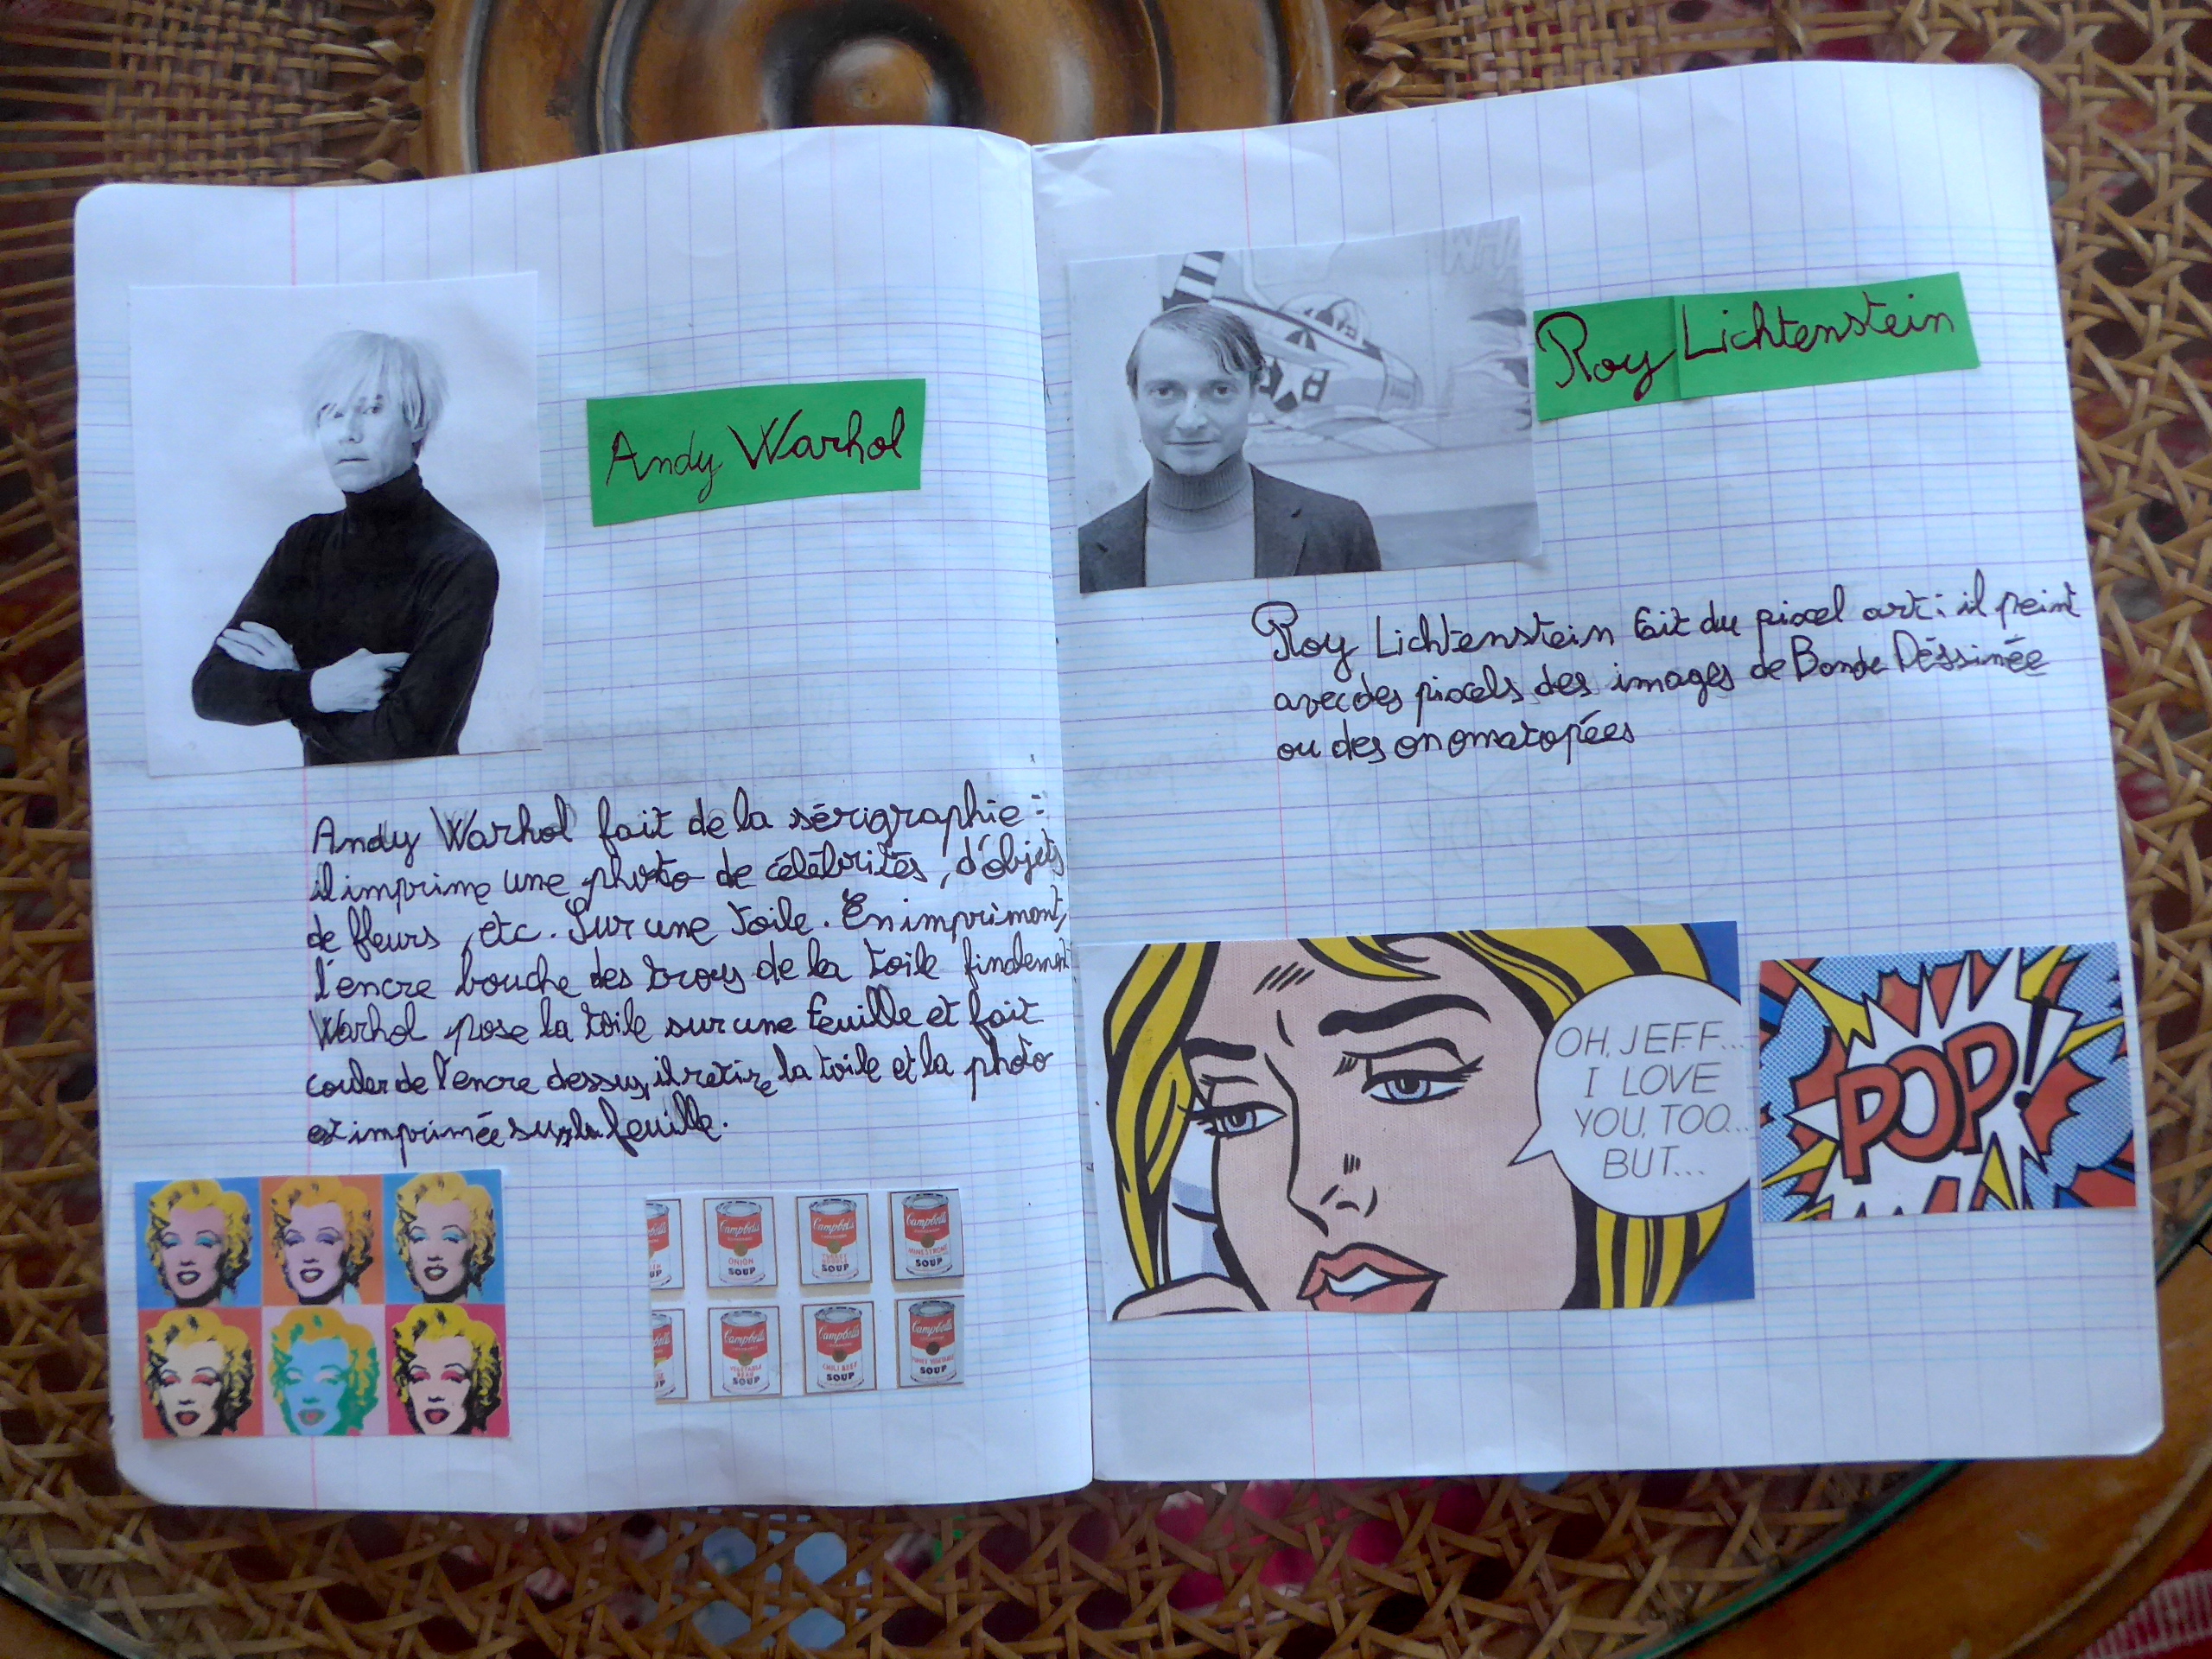 Andy Warhol
Andy Warhol fait de la sérigraphie :
il imprime une photo de célébrités, d'objets
de fleurs, etc. Sur une toile. En imprimant,
l'encre bouche des trous de la toile findement
Warhol pose la toile sur une feuille et fait
couler de l'encre dessus, il retire la toile et la photo
est imprimée sur la feuille.
Campbell's
ONION
SOUP
Campbell's
TURKEY
NOODLE
SOUP
Campbell's
MINESTRONE
SOUP
UP
Campbell's
VEGETABLE
BEAN
SOUP
Campbell's
CHILI BEEF
SOUP
Campbell's
TURKEY VEGETABLE
SOUP
UP
Roy Lichtenstein
WHA
Roy Lichtenstein fait du pixel art : il peint
avec des pixels des images de Bande Déssinée
ou des onomatopées
OH, JEFF...
I LOVE
YOU, TOO...
BUT...
POP!